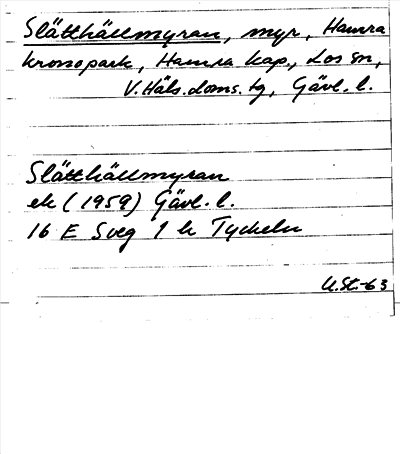 Slätthällmyran, myr, Hamra
kronopark, Hamra kap., Los sn,
V. Häls. doms. tg, Gävl. l.
Slätthällmyran
ek (1959) Gävl. l.
16 E Sveg 1 h Tyckeln
U.St.-63